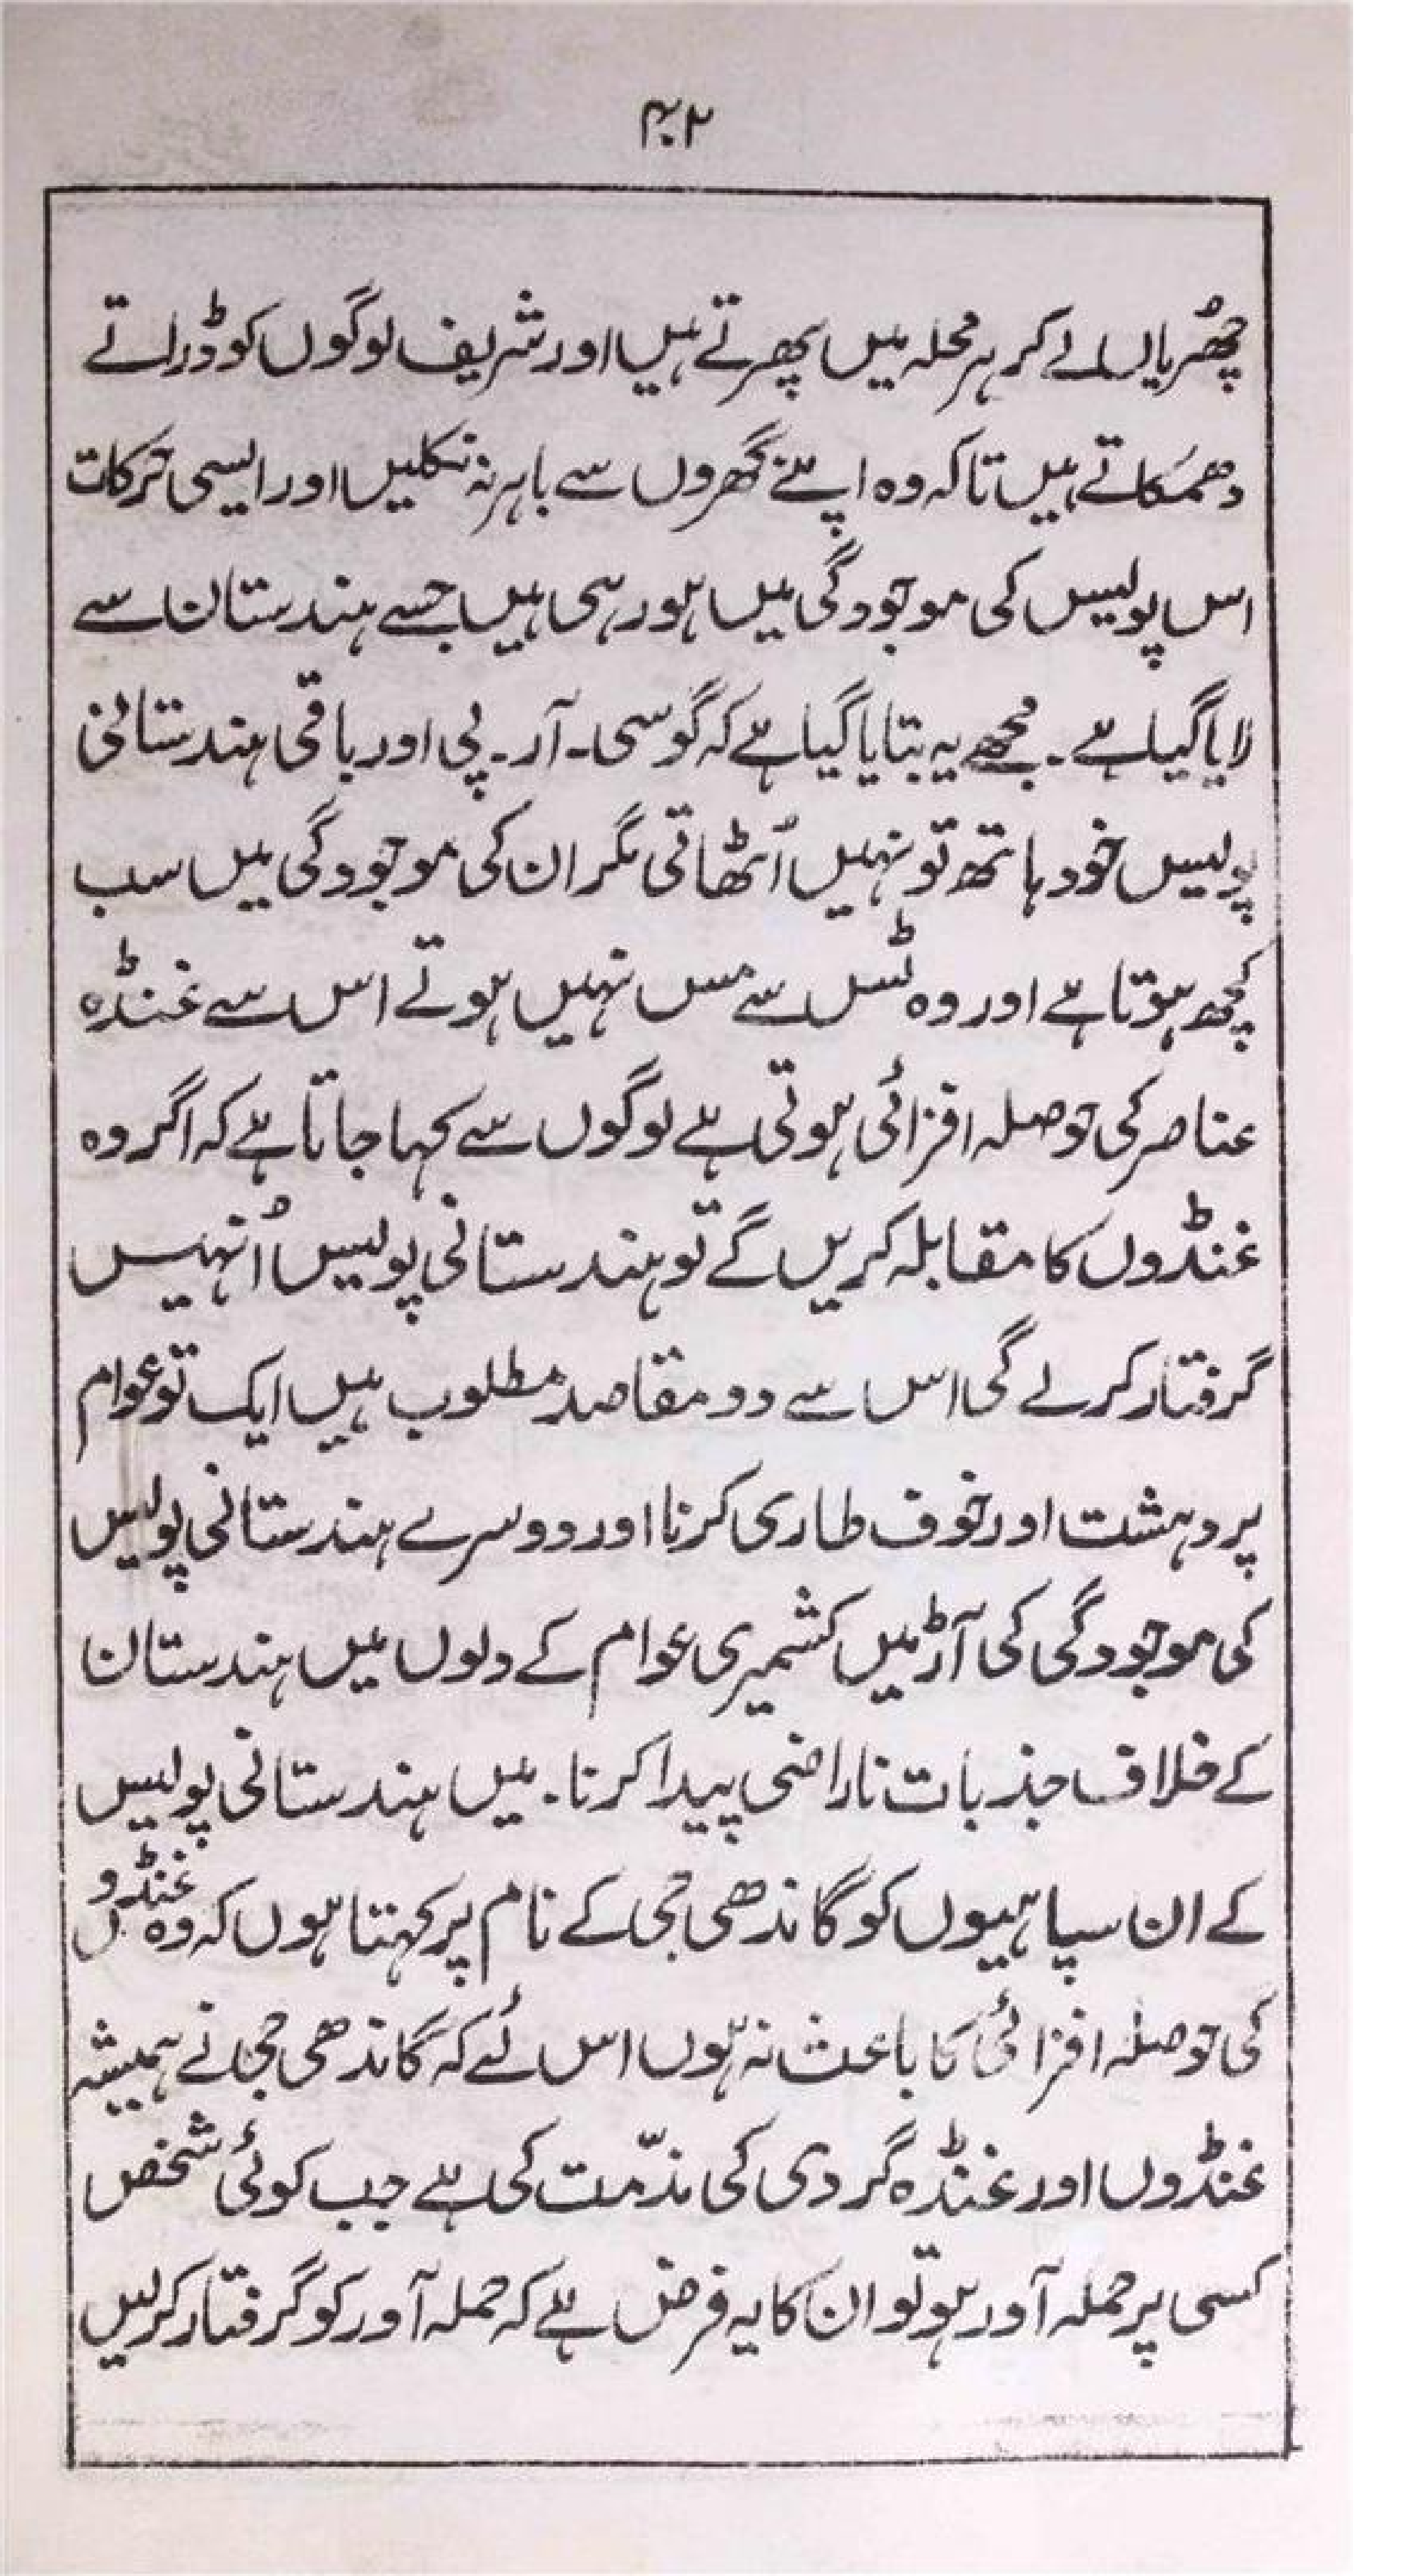 ۴۰۲
چھُریاں لے کر ہر محلہ میں پھرتے ہیں اور شریف لوگوں کو ڈراتے
دھمکاتے ہیں تاکہ وہ اپنے گھروں سے باہر نہ نکلیں اور ایسی حرکات
اس پولیس کی موجودگی میں ہو رہی ہیں جسے ہندستان سے
لایا گیا ہے ۔ مجھے یہ بتایا گیا ہے کہ گو سی۔ آر۔ پی اور باقی ہندستانی
پولیس خود ہاتھ تو نہیں اُٹھاتی مگر ان کی موجودگی میں سب
کچھ ہوتا ہے اور وہ ٹس سے مس نہیں ہوتے اس سے غنڈہ
عناصر کی حوصلہ افزائی ہوتی ہے لوگوں سے کہا جاتا ہے کہ اگر وہ
غنڈوں کا مقابلہ کریں گے تو ہندستانی پولیس اُنہیں
گرفتار کرلے گی اس سے دو مقاصد مطلوب ہیں ایک تو عوام
پر دہشت اور خوف طاری کرنا اور دوسرے ہندستانی پولیس
کی موجودگی کی آڑ میں کشمیری عوام کے دلوں میں ہندستان
کے خلاف جذبات ناراضی پیدا کرنا۔ میں ہندستانی پولیس
کے ان سپاہیوں کو گاندھی جی کے نام پر کہتا ہوں کہ وہ غنڈوں
کی حوصلہ افزائی کا باعث نہ ہوں اس لئے کہ گاندھی جی نے ہمیشہ
غنڈوں اور غنڈہ گردی کی مذمّت کی ہے جب کوئی شخص
کسی پر حملہ آور ہو تو ان کا یہ فرض ہے کہ حملہ آور کو گرفتار کرلیں